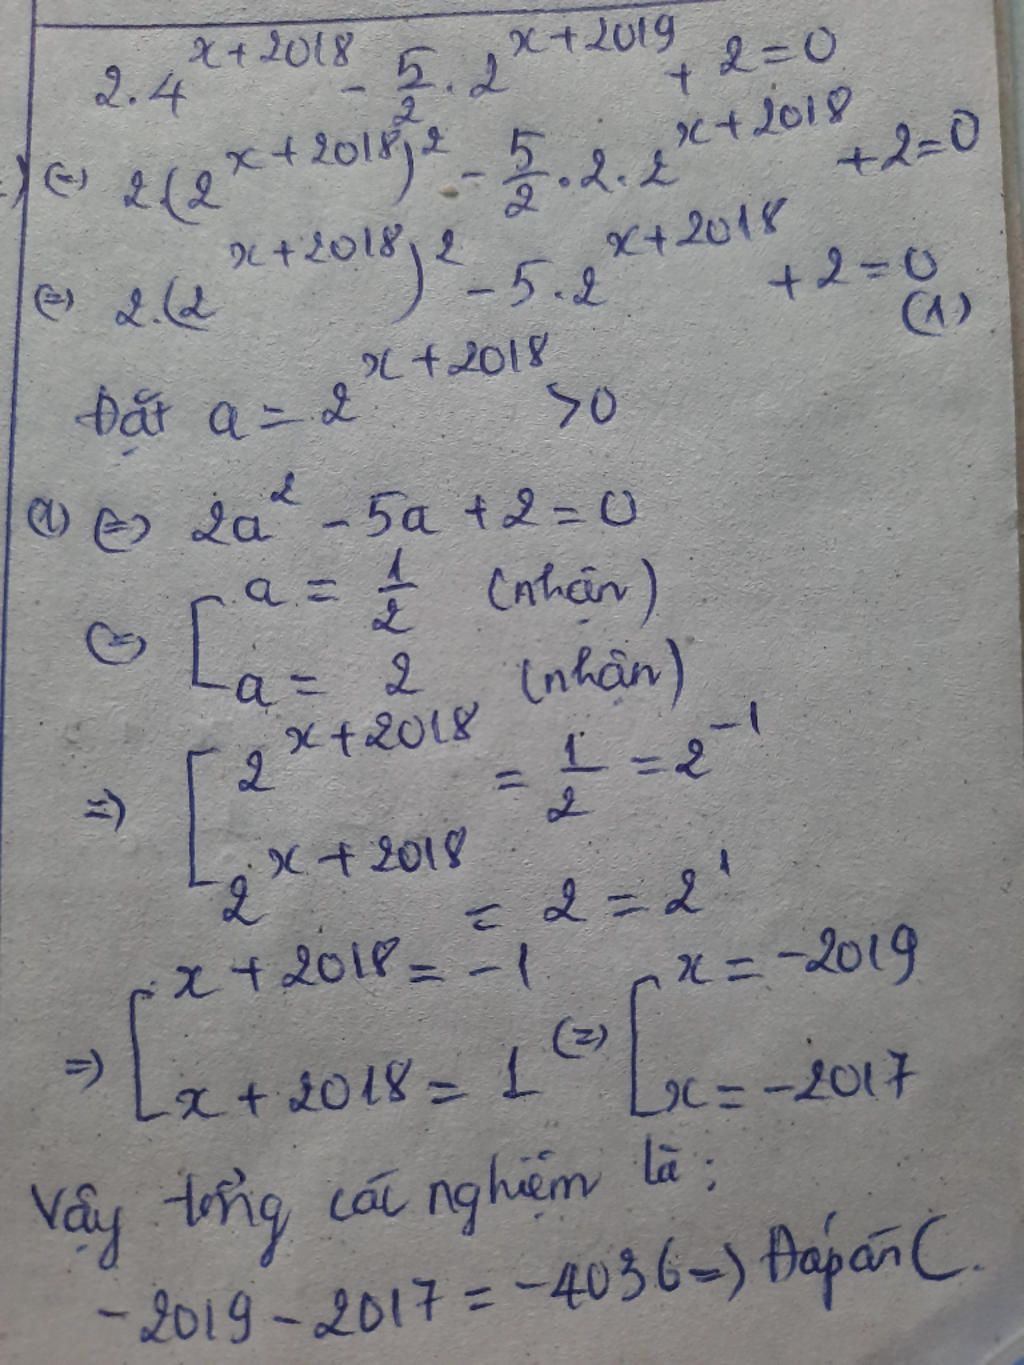 2.4^{x+2018} - \frac{5}{2}.2^{x+2019} + 2 = 0
(=) 2(2^{x+2018})^2 - \frac{5}{2}.2.2^{x+2018} + 2 = 0
(=) 2.(2^{x+2018})^2 - 5.2^{x+2018} + 2 = 0 (1)
Đặt a = 2^{x+2018} > 0
(1) (=) 2a^2 - 5a + 2 = 0
(=) [ a = \frac{1}{2} (nhận)
a = 2 (nhận)
=) [ 2^{x+2018} = \frac{1}{2} = 2^{-1}
2^{x+2018} = 2 = 2^1
=) [ x + 2018 = -1 (=) [ x = -2019
x + 2018 = 1 x = -2017
Vậy tổng các nghiệm là:
-2019 - 2017 = -4036 =) Đáp án C.